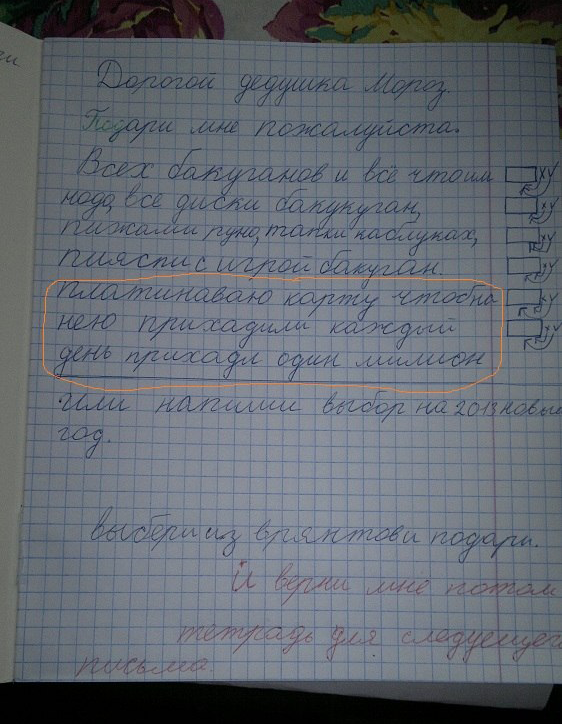 Дорогой дедушка Мороз.
Подари мне пожалуйста.
Всех бакуганов и всё чтоим
нодо, все диски бакукуган,
пижами руно, тапки на блуках,
пияспи с игрой бакуган.
платинаваю карту чтоб на
нею прихадили каждый
день прихадл один милион
Или напиши выбор на 2013 новые
год.
выбери из врянтов и подари.
И верни мне потом
тетрадь для следуещего
письма.